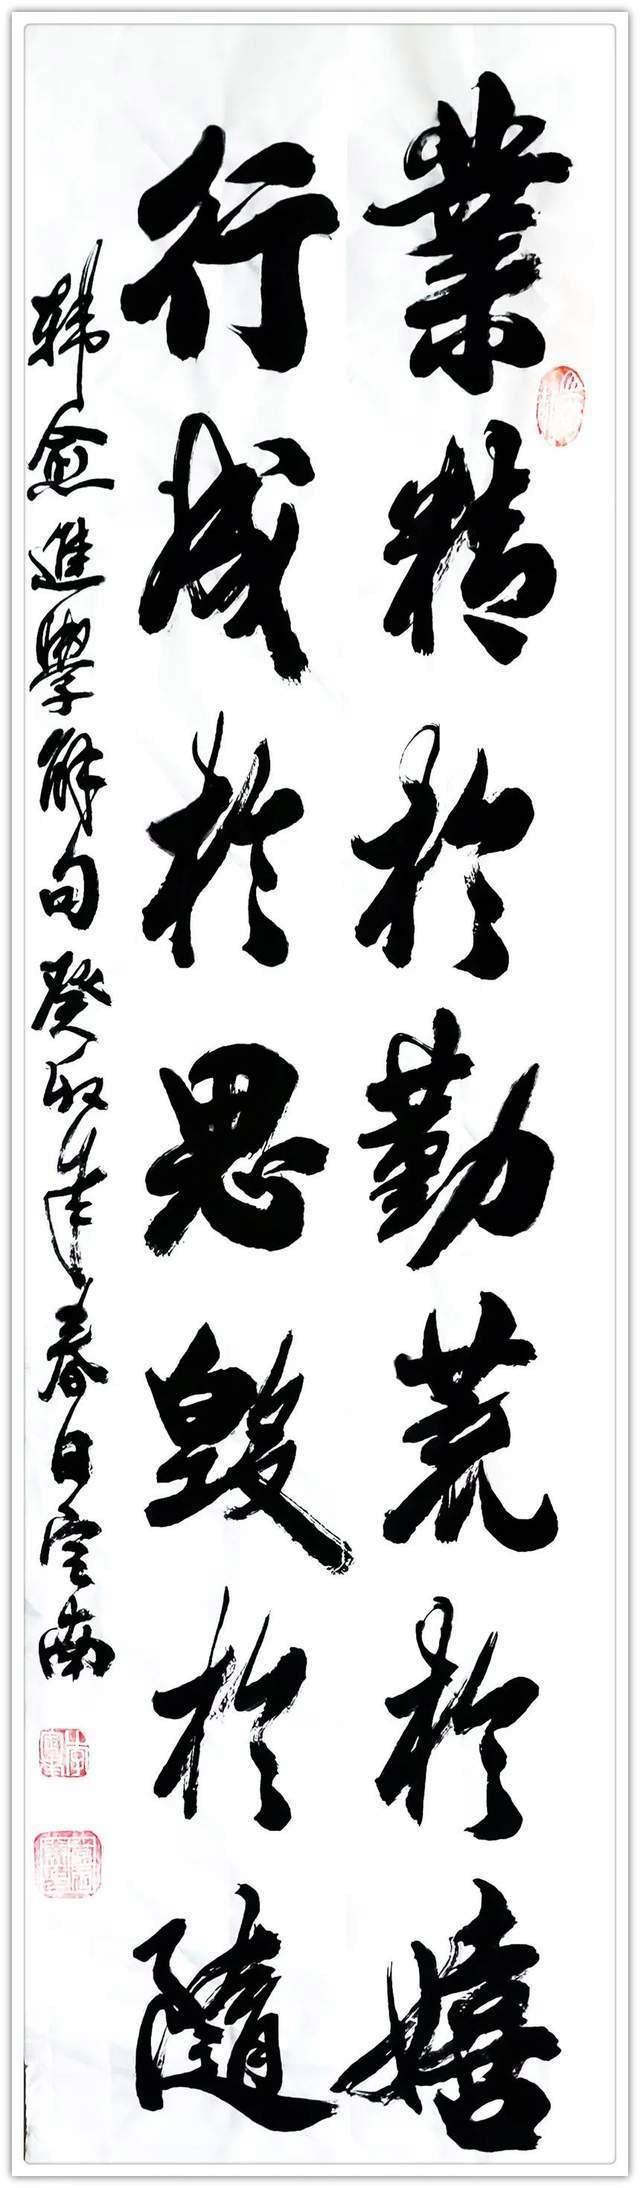 業精於勤荒於嬉
行成於思毀於隨
韓愈進學解句癸卯年春日雲南